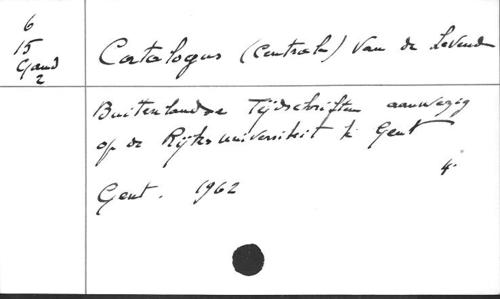 6
15
Gand
2
Catalogus (Centrale) van de levende
Buitenlandse Tijdschriften aanwezig
op de Rijksuniversiteit te Gent
4°
Gent. 1962